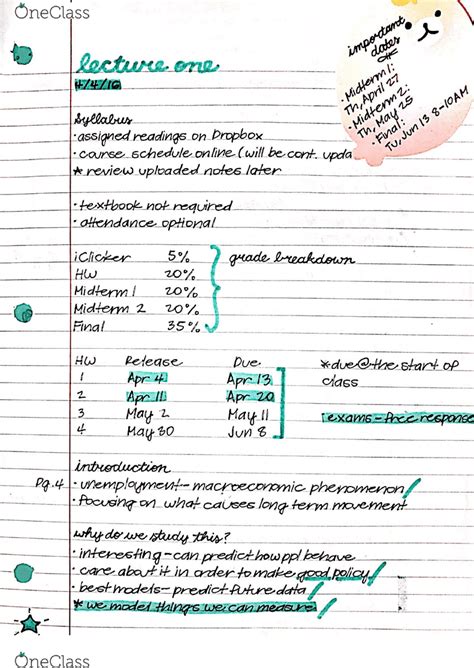 OneClass
important
dates
· Midterm 1:
Th, April 27
· Midterm 2:
Th, May 25
· Final:
Tu, Jun 13 8-10AM
lecture one
4/4/16
Syllabus
· assigned readings on Dropbox
· course schedule online (will be cont. upda
* review uploaded notes later
· textbook not required
· attendance optional
iClicker 5%
HW 20%
Midterm 1 20%
Midterm 2 20%
Final 35%
grade breakdown
HW Release Due
1 Apr 4 Apr 13
2 Apr 11 Apr 20
3 May 2 May 11
4 May 30 Jun 8
*due@the start of
class
exams-free response
introduction
Pg. 4 · unemployment-macroeconomic phenomenon
· focusing on what causes long term movement
why do we study this?
· interesting-can predict how ppl behave
· care about it in order to make good policy
· best models-predict future data
* we model things we can measure
OneClass